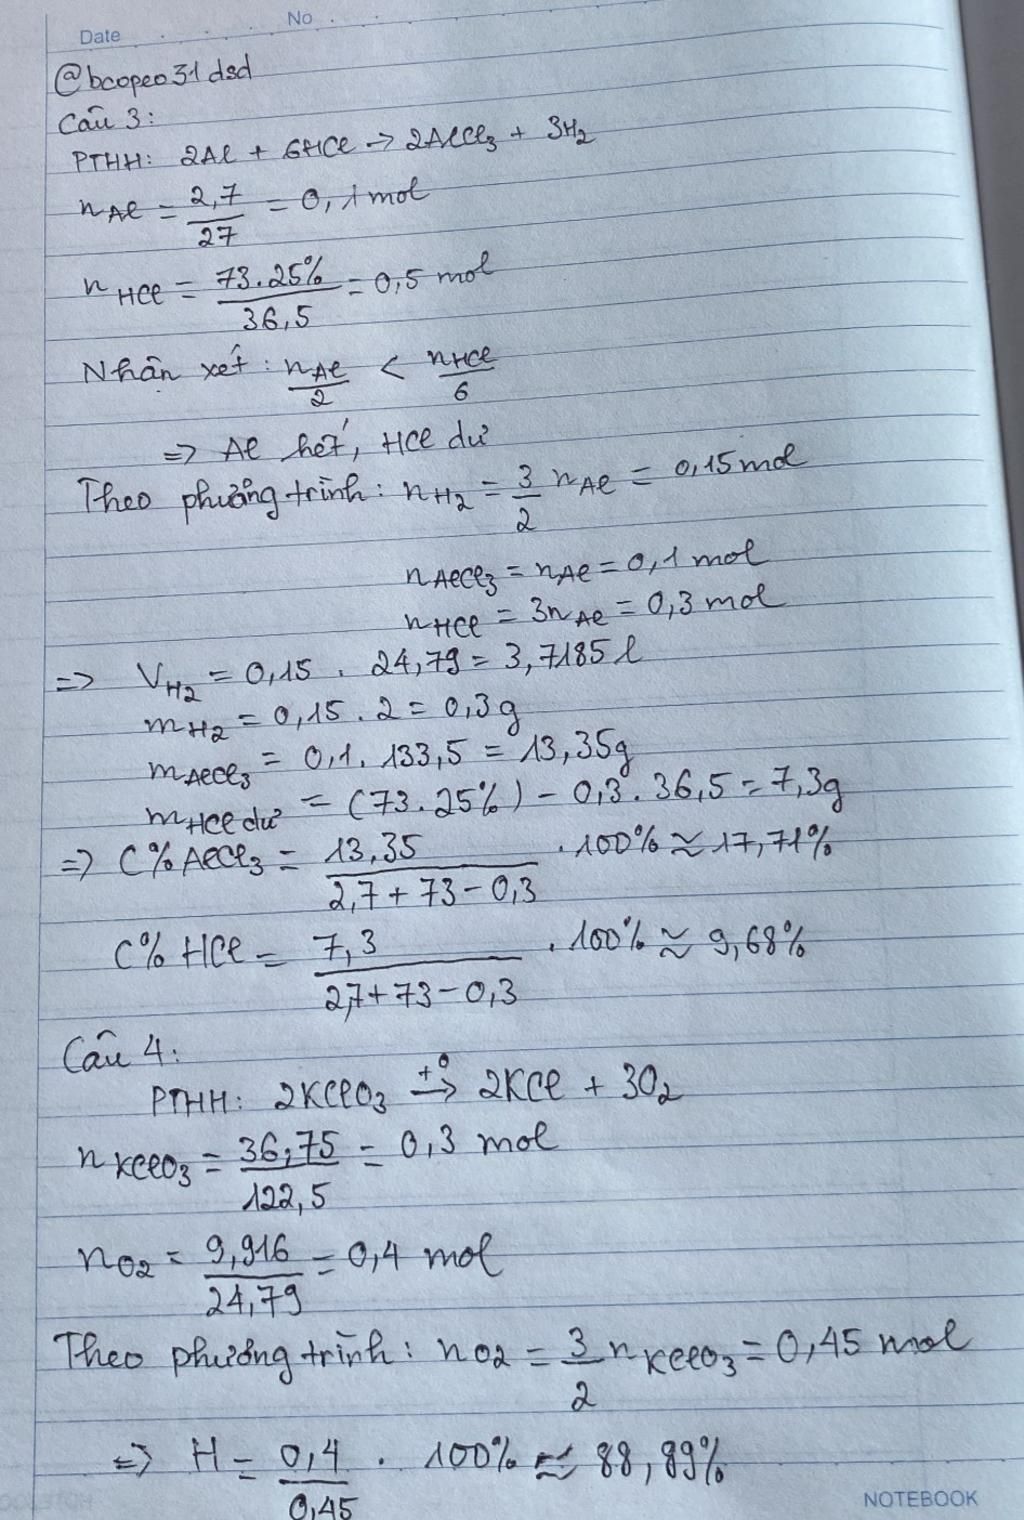 Date No
@bcopeo31dsd
Câu 3:
PTHH: 2Al + 6HCl → 2AlCl₃ + 3H₂
n Al = 2,7/27 = 0,1 mol
n HCl = 73.25%/36,5 = 0,5 mol
Nhân xét: nAl/2 < nHCl/6
=> Al hết, HCl dư
Theo phương trình: nH₂ = 3/2 nAl = 0,15 mol
nAlCl₃ = nAl = 0,1 mol
nHCl = 3nAl = 0,3 mol
=> VH₂ = 0,15 . 24,79 = 3,7185 l
mH₂ = 0,15 . 2 = 0,3g
mAlCl₃ = 0,1. 133,5 = 13,35g
mHCl dư = (73.25%) - 0,3. 36,5 = 7,3g
=> C% AlCl₃ = 13,35/(2,7 + 73 - 0,3) . 100% ≈ 17,71%
C% HCl = 7,3/(2,7+73-0,3) . 100% ≈ 9,68%
Câu 4:
PTHH: 2KClO₃ t⁰→ 2KCl + 3O₂
n KClO₃ = 36,75/122,5 = 0,3 mol
nO₂ = 9,916/24,79 = 0,4 mol
Theo phương trình: nO₂ = 3/2 nKClO₃ = 0,45 mol
=> H = 0,4/0,45 . 100% ≈ 88,89%
NOTEBOOK